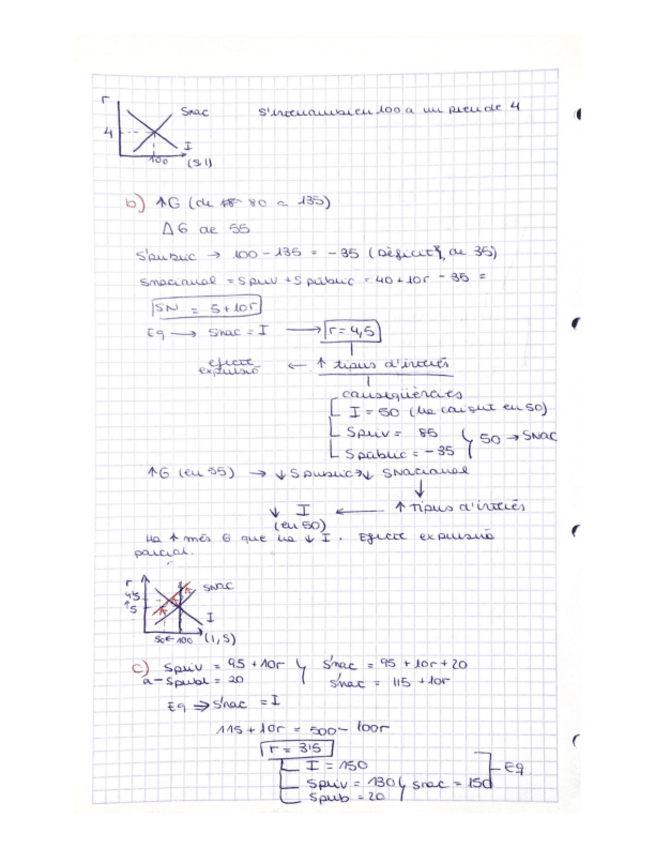 r
Snac
S'intercanvien 100 a un preu de 4
4
I
100 (S,I)
b) ↑G (de 80 a 135)
ΔG de 55
S'públic → 100 - 135 = -35 (Dèficit, de 35)
Snacional = Spriv + Spúblic = 40 + 10r - 35 =
SN = 5 + 10r
Eq → Snac = I → r = 4,5
efecte expulsió ← ↑ tipus d'interès
conseqüències
I = 50 (ha caigut en 50)
Spriv = 85
50 → SNAC
Spúblic = -35
↑G (en 55) → ↓Spúblic → ↓ Snacional
↓ I ← ↑ tipus d'interès
(en 50)
Ha ↑ més G que ha ↓ I. Efecte expulsió
parcial.
r
Snac
4'5
↑5
I
50 ← 100 (I,S)
c) Spriv = 95 + 10r
S'nac = 95 + 10r + 20
a - Spubl = 20
S'nac = 115 + 10r
Eq ⇒ S'nac = I
115 + 10r = 500 - 100r
r = 3'5
I = 150
Eq
Spriv = 130
Snac = 150
Spub = 20